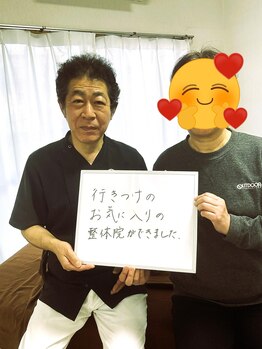 行きつけの
お気に入りの
整体院ができました.
OUTDOOR